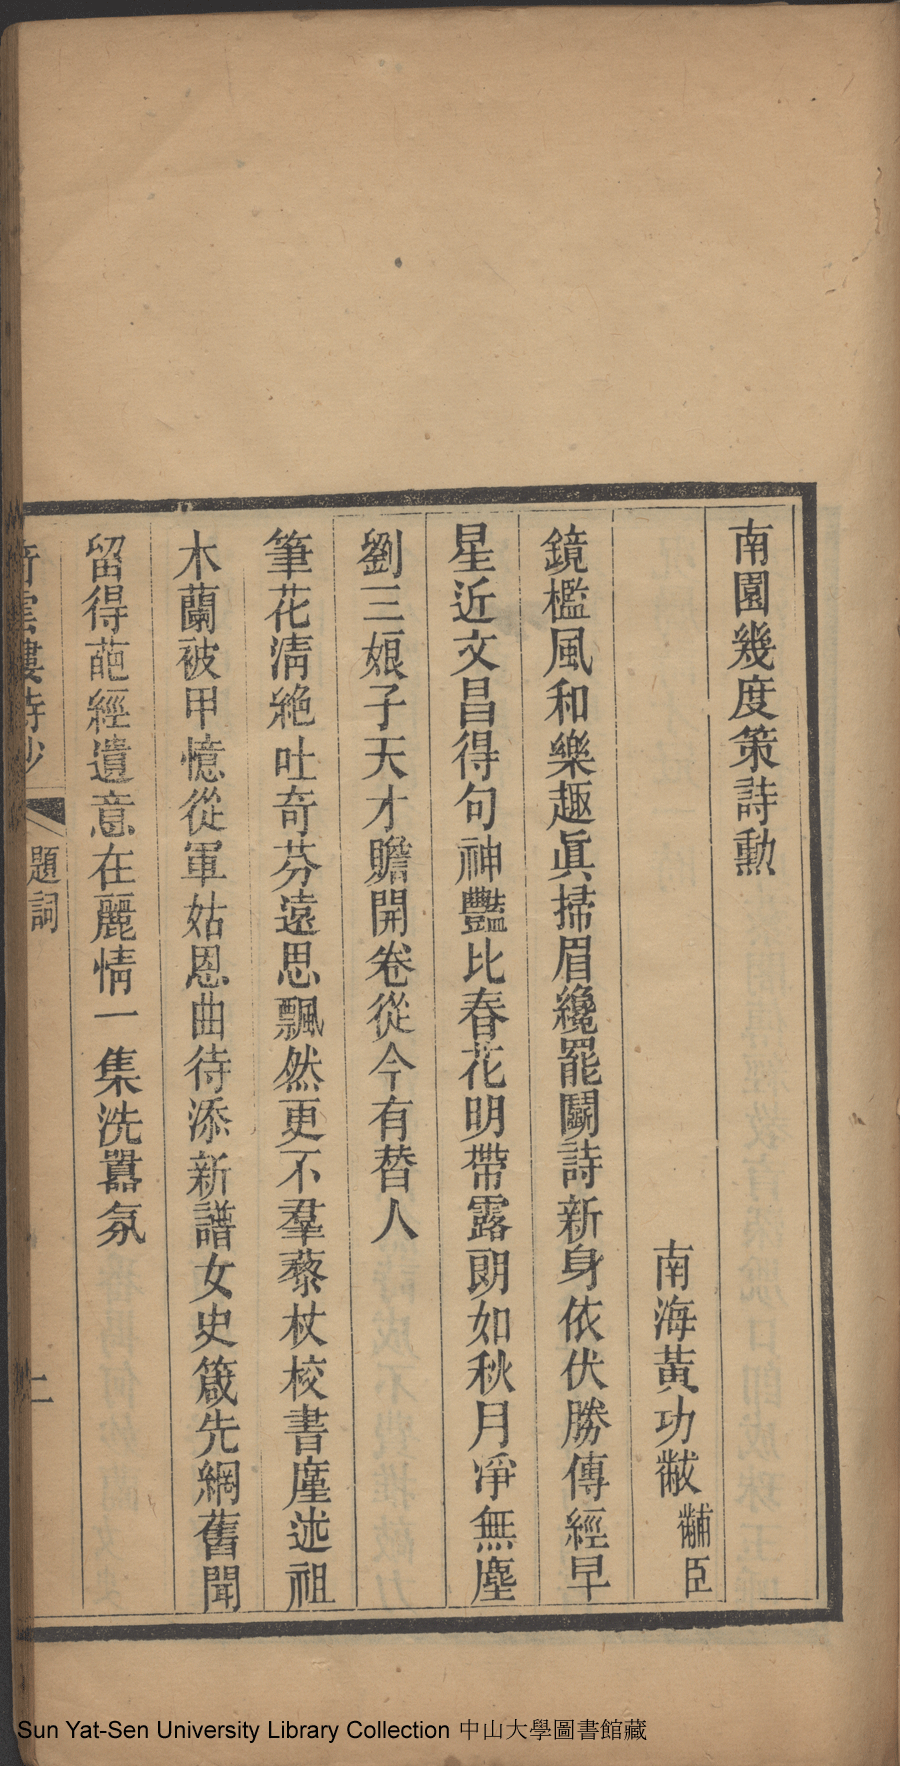 南園幾度策詩勳
南海黃功黻 黼臣
鏡檻風和樂趣眞掃眉纔罷鬭詩新身依伏勝傳經早
星近文昌得句神豔比春花明帶露朗如秋月凈無塵
劉三娘子天才贍開卷從今有替人
筆花清絶吐奇芬遠思飄然更不羣藜杖校書廑述祖
木蘭被甲憶從軍姑恩曲待添新譜女史箴先網舊聞
留得葩經遺意在麗情一集洗囂氛
雲樓詩鈔 題詞
Sun Yat-Sen University Library Collection 中山大學圖書館藏